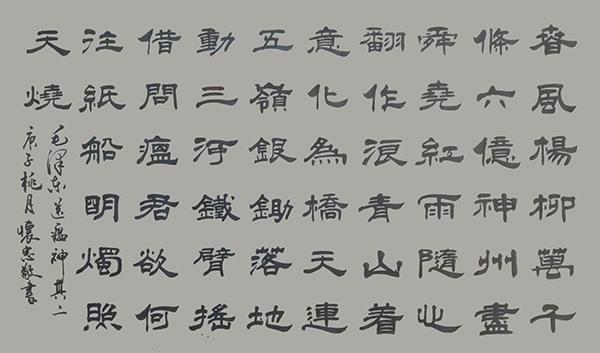 春風楊柳萬千
條六億神州盡
舜堯紅雨隨心
翻作浪青山着
意化為橋天連
五嶺銀鋤落地
動三河鐵臂搖
借問瘟君欲何
往紙船明燭照
天燒
毛澤東送瘟神其二
庚子桃月懷忠敬書